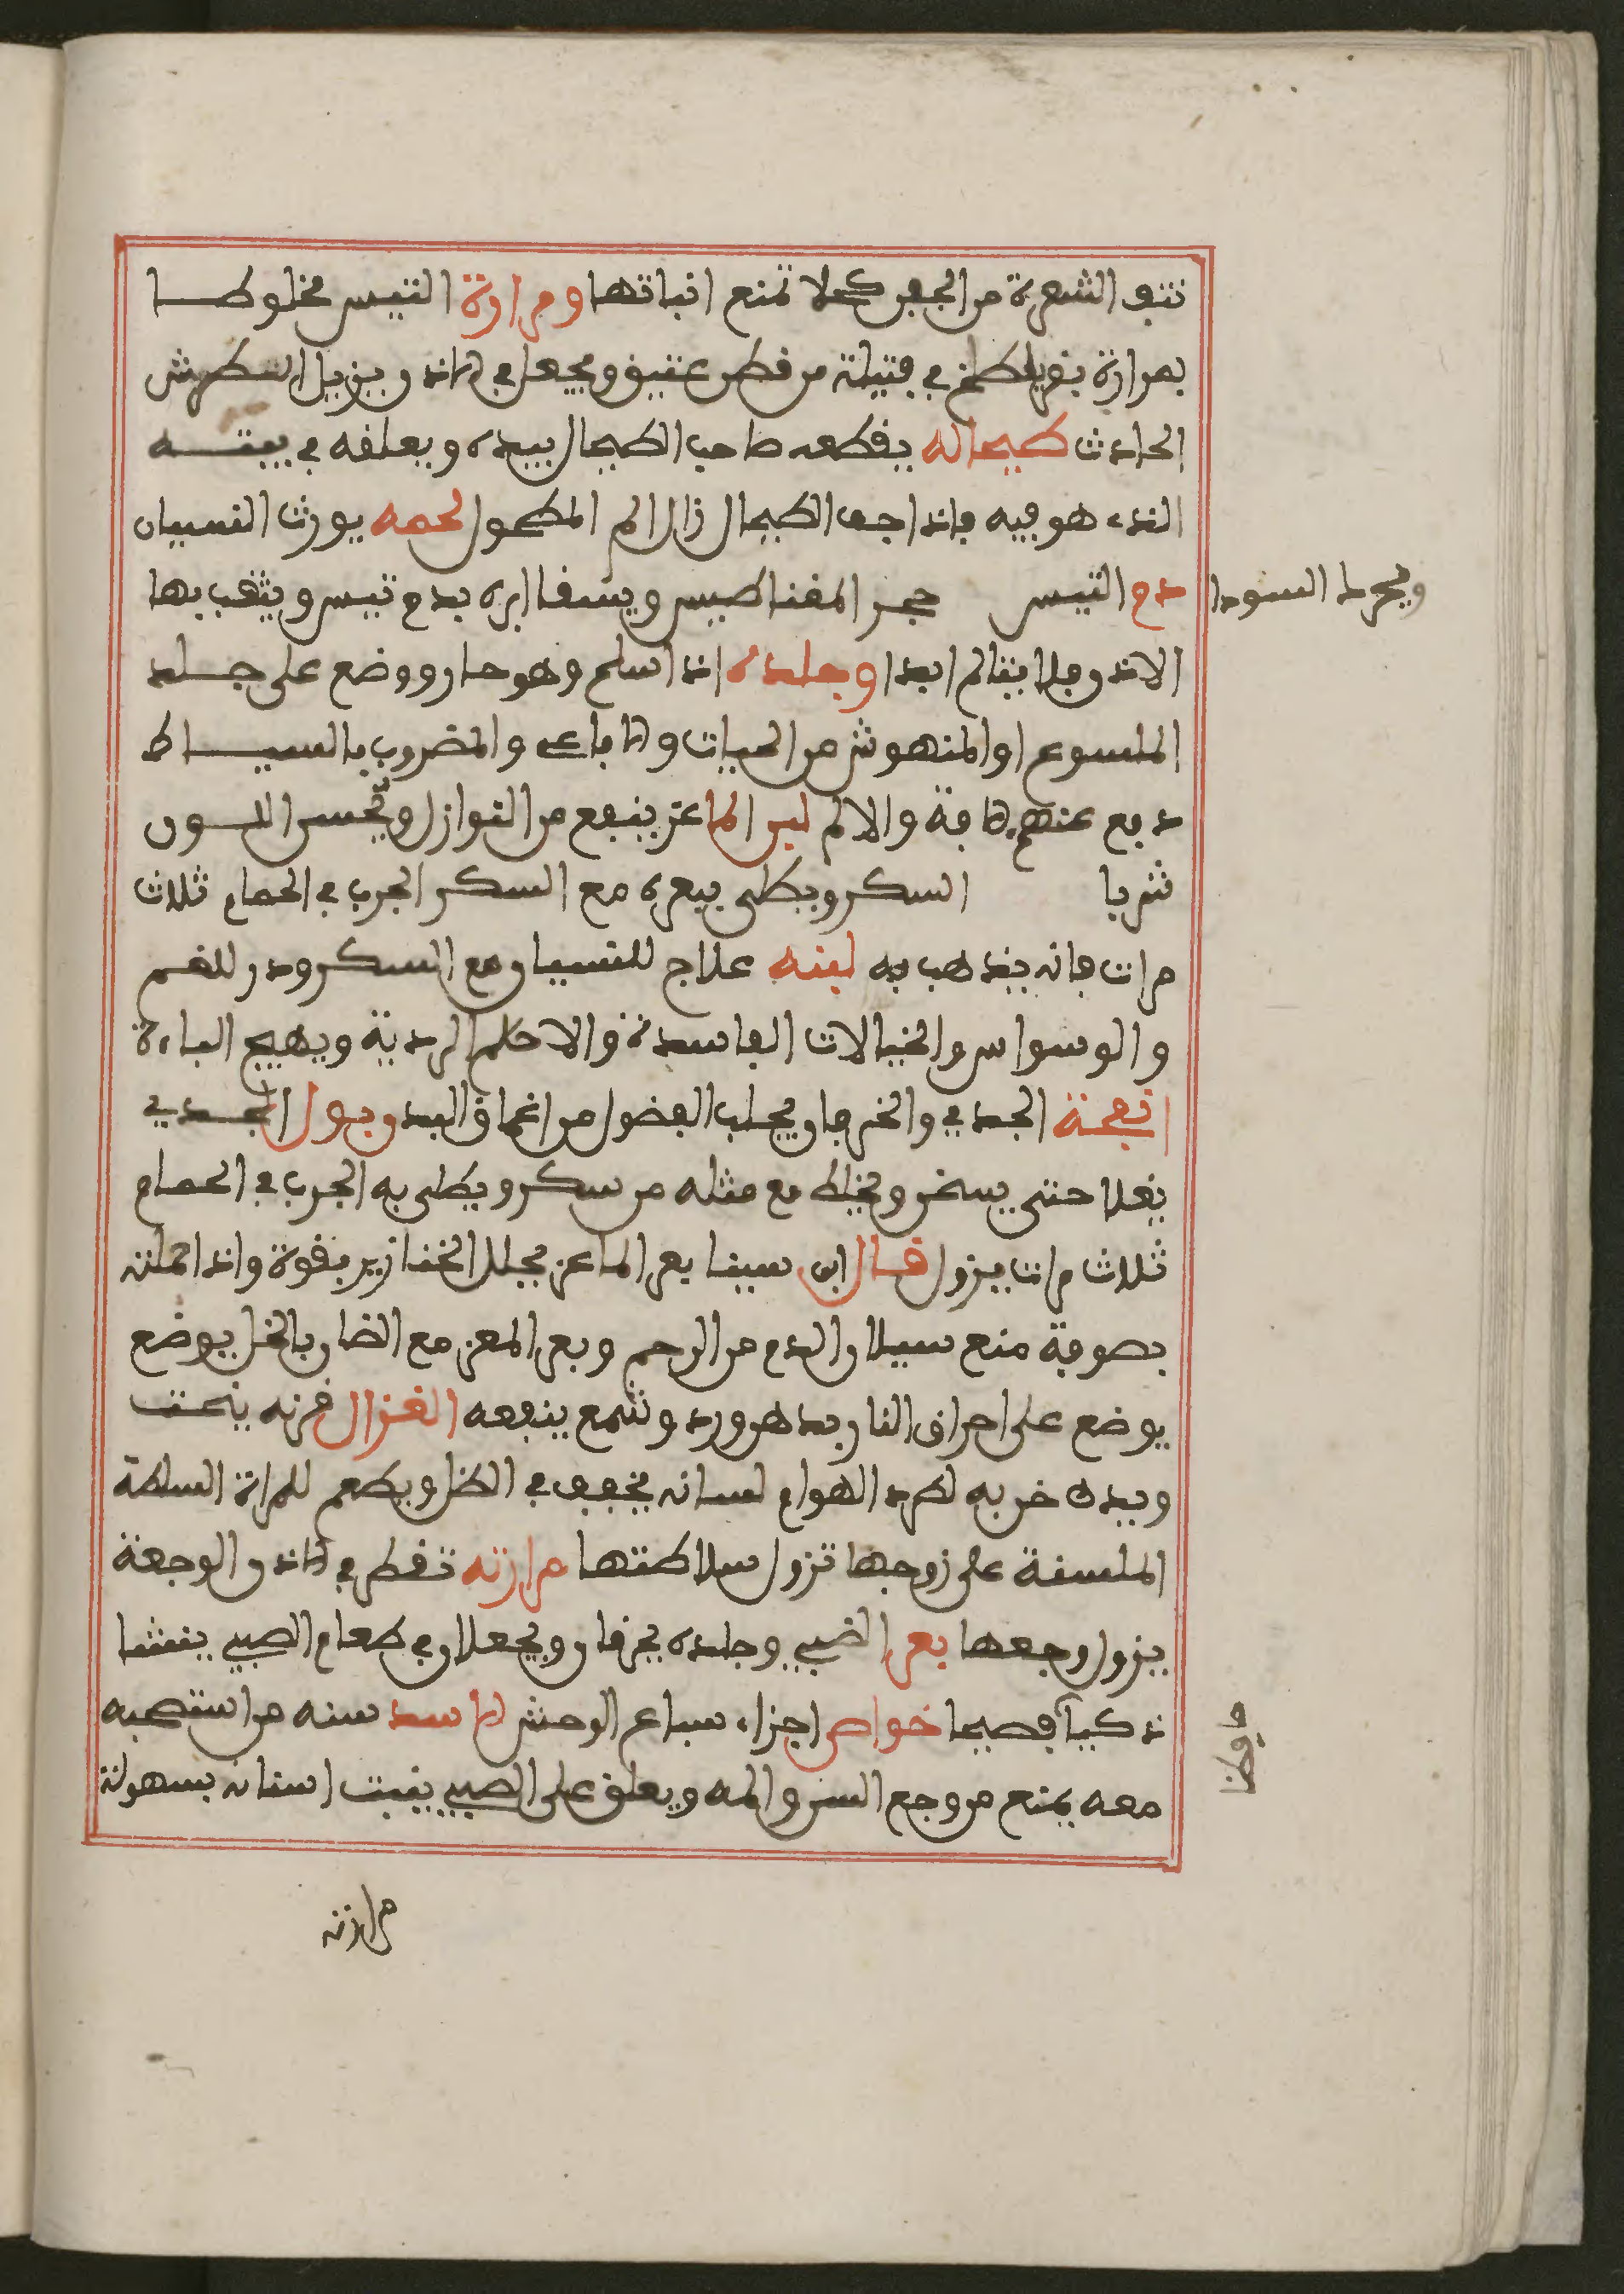 نتف الشعرة من الجفن كحلا تمنع انباتها ومرارة التيس مخلوطا
بمرارة بقر يلطخ في فتيلة من قطن عتيق ويجعل في الاذن ويزيل الطرش
الحادث طحاله يقطعه صاحب الطحال بيده ويعلقه في بيته
الذي هو فيه فاذا جف الطحال زال الم المطحول لحمه يورث النسيان
ويحرك السودا
دم التيس حجر المغناطيس ويسقا ابره بدم تيس ويثقب بها
الاذن فلا يتالم ابدا وجلده اذا سلح وهو حار ووضع على جلد
الملسوع او المنهوش من الحيات والافاعي والمضروب بالسياط
دفع عنهم الافة والالم لبن الماعز ينفع من النوازل ويحسن اللون
شربا السكر ويطلى ببعره مع السكر الجرب في الحمام ثلاث
مرات فانه يذهب به لبنه علاج للنسيان مع السكر ودر للغم
والوسواس والخيالات الفاسدة والاحلام الردية ويهيج الباءة
انفحة الجدي والخرفان يجلب الفضول من اعماق البدن وبول الجدي
يغلا حتى يسخن ويخلط مع مثله من سكر ويطلى به الجرب في الحمام
ثلاث مرات يزول قال ابن سينا بعر الماعز يحلل الخنازير بقوة واذا حملته
بصوفة منع سيلان الدم من الرحم وبعر المعز مع الضان بالخل يوضع
يوضع على احراق النار بدهن ورد وشمع ينفعه الغزال قرنه ينحت
ويدخن به لطرد الهوام لسانه يخفف في الظل ويطعم للمراة السلطة
الملسنة على زوجها تزول سلاطتها مرارته تقطر في الاذن الوجعة
يزول وجعها بعر الضبي وجلده يحرقان ويجعلان في طعام الصبي ينشا
ذكيا فصيحا خواص اجزاء سباع الوحش الاسد سنه من استصحبه
حافظا
معه يمنع من وجع السن والمه ويعلق على الصبي ينبت اسنانه بسهولة
مرارته